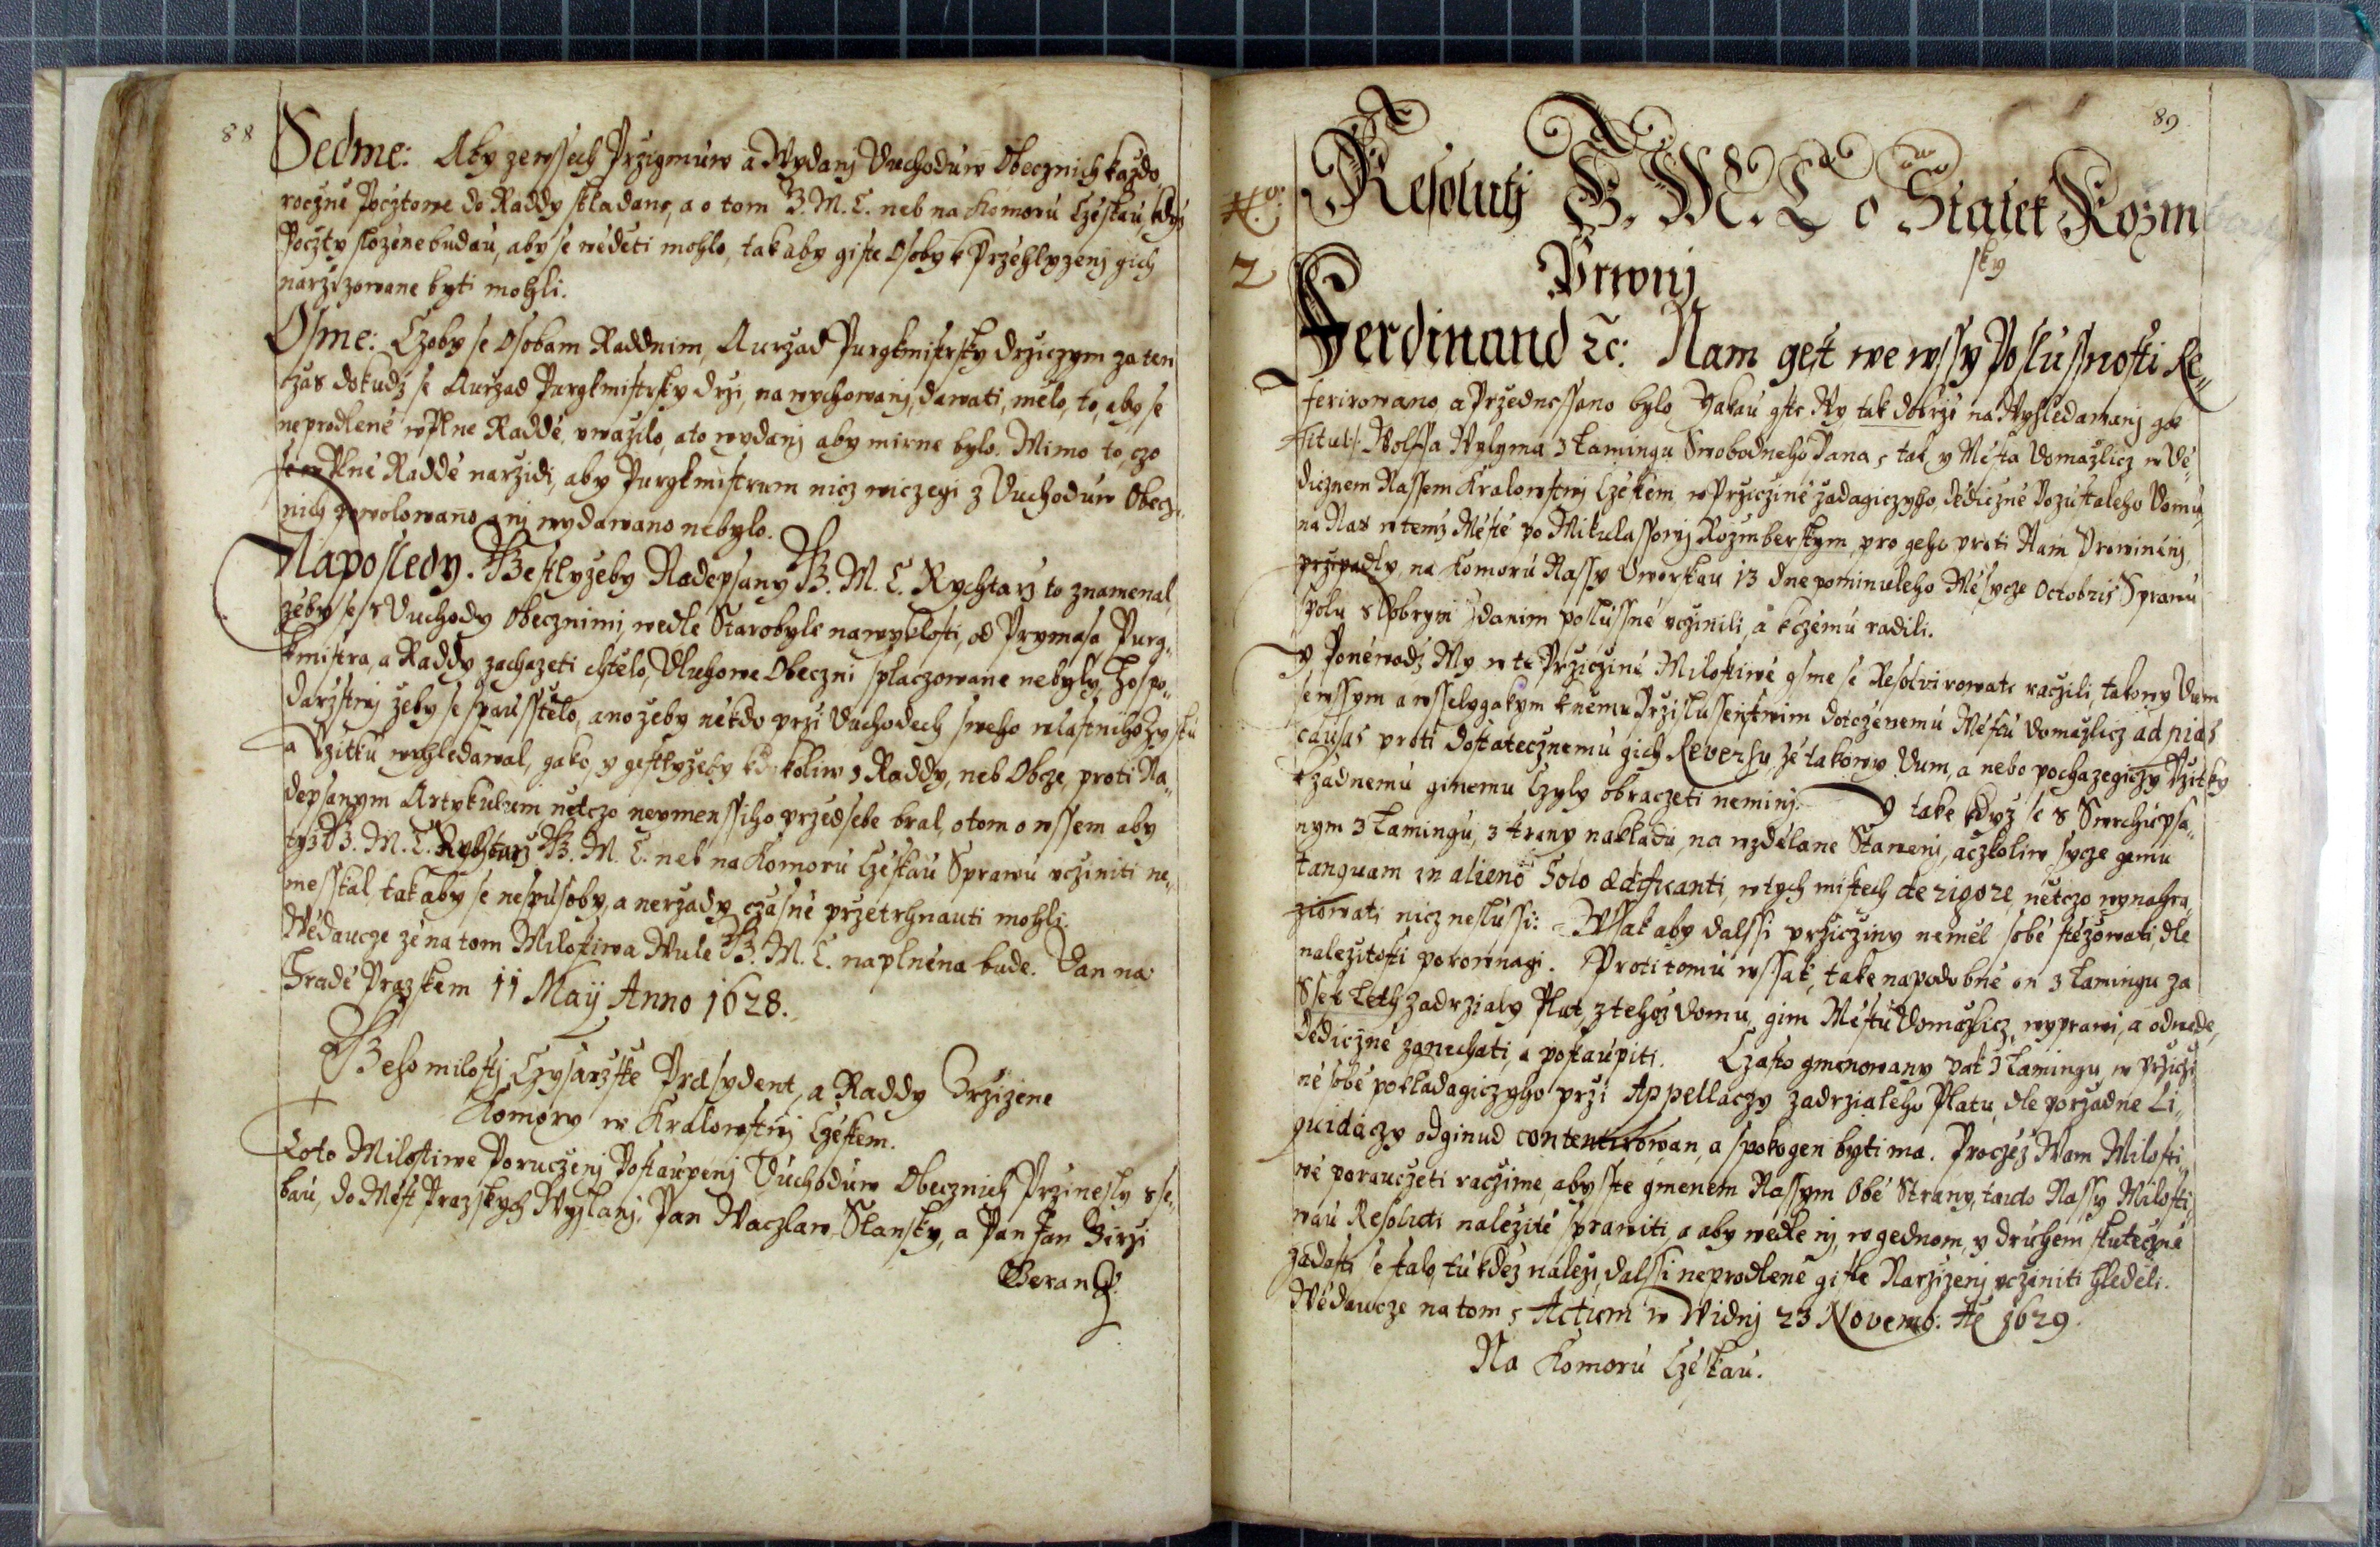 88
Sedme: Aby ze wssech Przigmuw a Wydanj Duchoduw Obecznich každo„
roczné Pocztowe do Raddy skladano, a o tom G. M. C. neb na Komoru Czéskau, kdyź
Poczty slozéne budau, aby se wédéti mohlo, tak aby giste Osoby k Przéhlyzenj gich
narzizowane byti mohli.
Osme: Czoby se Osobam Raddnim, Aurzad Purgkmistrsky drziczym za ten
czas dokudz se Aurzad Purgkmistrsky drzi, na wychowanj, dawati, mélo, to, aby se
neprodlené w Plne Raddé, vwazilo, a to wydanj aby mirne bylo. Mimo to, czo
se w Plné Raddé narzidi, aby Purgkmistrum nicz wiczegi z Duchoduw Obecz„
nich powolowano anj wydawano nebylo.
Naposledy. Gestlyzeby Nadepsany G. M. C. Rychtarz to znamenal,
zéby se s Duchody Obecznimi, wedle Starobyle nawyklosti, od Prymasa, Purg„
kmistra, a Raddy zachazeti chtélo, Dluhowe Obeczni splaczowane nebyly, Hospo„
darzstwj zeby se spausstélo, ano zeby nékdo przi Duchodech sweho wlastniho Zysku
a Vzitku wyhledawal, gako, y gestlyzeby kdokoliw z Raddy, neb Obcze, proti Na„
depsanym Artykulum nétczo neymenssiho przed sebe bral, o tom o wssem aby
tyz G. M. C. Rychtarz G. M. C. neb na Komoru Czéskau Sprawu vcziniti ne„
messkal, tak aby se nespusoby, a nerzady czasné przetrhnauti mohli.
Wédaucze zé na tom Milostiwa Wule G. M. C. naplnéna bude. Dan na
Hradé Prazskem 11 Maÿ Anno 1628.
Geho milostj Czysarzské Præsydent, a Raddy Zrzizene
Komory w Kralowstwj Czéskem.
Toto Milostiwe Poruczenj Postaupenj Duchoduw Obecznich Przinesly s se„
bau, do Mést Prazskych Wyslanj, Pan Waczlaw Slansky, a Pan Jan Girzi
Beran
89
Resolutj G. M. C. o Statek Rozmbersky
Prwnj
2
Ferdinand ꝛc: Nam gest we wssy Poslussnosti Re„
ferirowano, a Przednessano bylo, Yakau gste Wy, tak dobrze na Wyhledawanj go
titul: Wolffa Wylyma z Lamingu Swobodneho Pana, tak y Mésta Domazlicz w Dé„
dicznem Nassem Kralowstwj Czéskem, w Przicziné zadagiczyho, dédiczné Pozustaleho Domu,
na Nas w temz Mésté po Mikulassowj Rozmberskym, pro geho proti Nam Prowinénj,
przipadly, na Komoru Nassy Dworskau 13 dne pominuleho Mésycze Octobris Sprawu
spolu s dobrym Zdanim poslussné vczinili, a k czému radili.
y Ponéwadz My w te Przicziné Milostiwé gsme se Resolvirowati raczili, takowy Dum
se wssym a wsselygakym k nemu Przislussenstwim dotczénemu Méstu Domazlicz ad pias
causas proti dostatecznemu gich Reversu, zé takowy Dum, a nebo pochazegiczy Vzitky
k zadnemu ginemu Czyly obraczeti neminj. y take kdyz se s Swrchupsa„
nym z Lamingu, z strany nakladu, na wzdélane Stawenj, aczkoliw sycze gemu
tanquam in alieno Solo ædificanti, w tych mistech de rigore, nétczo wynahra„
ziowati nicz neslussi: Wssak aby dalssi przicziny nemél sobé stézowati, dle
nalezitosti porownagi. Proti tomu wssak, take napodobné on z Lamingu za
Ssest Leth zadrzialy Plat, z tehoz Domu, gim Méstu Domazlicz wyprawi, a odwede,
Dédiczné zanechati, a postaupiti. Czasto gmenowany pak z Lamingu, w Prziczi„
né sobé pokladagiczyho przi Appellaczy zadrzialeho Platu, dle porzadne Li„
quidaczy odginud contentirowan, a spokogen byti ma. Proczéz Wam Milosti„
wé porauczeti raczime, aby ste gmenem Nassym Obé Strany, tauto Nassy Milosti„
wau Resoluti nalezité sprawiti, a aby wedle nj, w gednom, y druhém skuteczné
zadosti se stalo, tu kdez nalezi, dalssi neprodlené giste Narzizenj vcziniti hledéli.
Wédaucze na tom, Actum w Widnj 23 Novemb: Aº 1629
Na Komoru Czéskau.